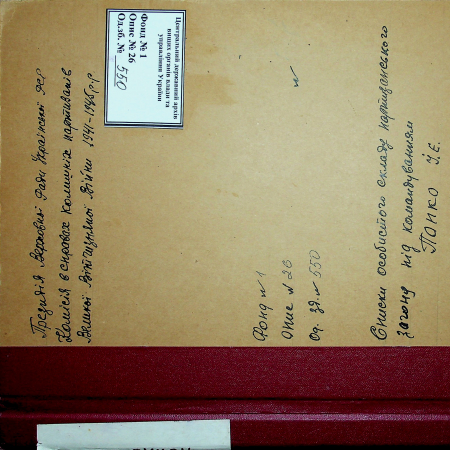 Центральний державний архів
вищих органів влади та
управління України
Фонд № 1
Опис № 26
Од.зб. № 550
Президія Верховної Ради Української РСР
Комісія в справах колишніх партизанів
Великої Вітчизняної війни 1941-1945 р.р.
Фонд № 1
Опис № 26
Од. зб. № 550
Списки особистого складу партизанського
загону під командуванням
Попко І.Е.